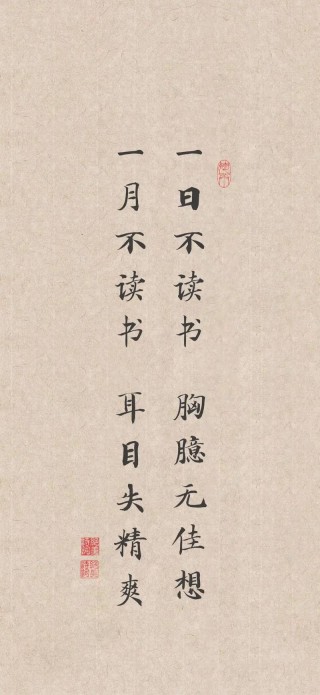 一日不读书 胸臆无佳想
一月不读书 耳目失精爽